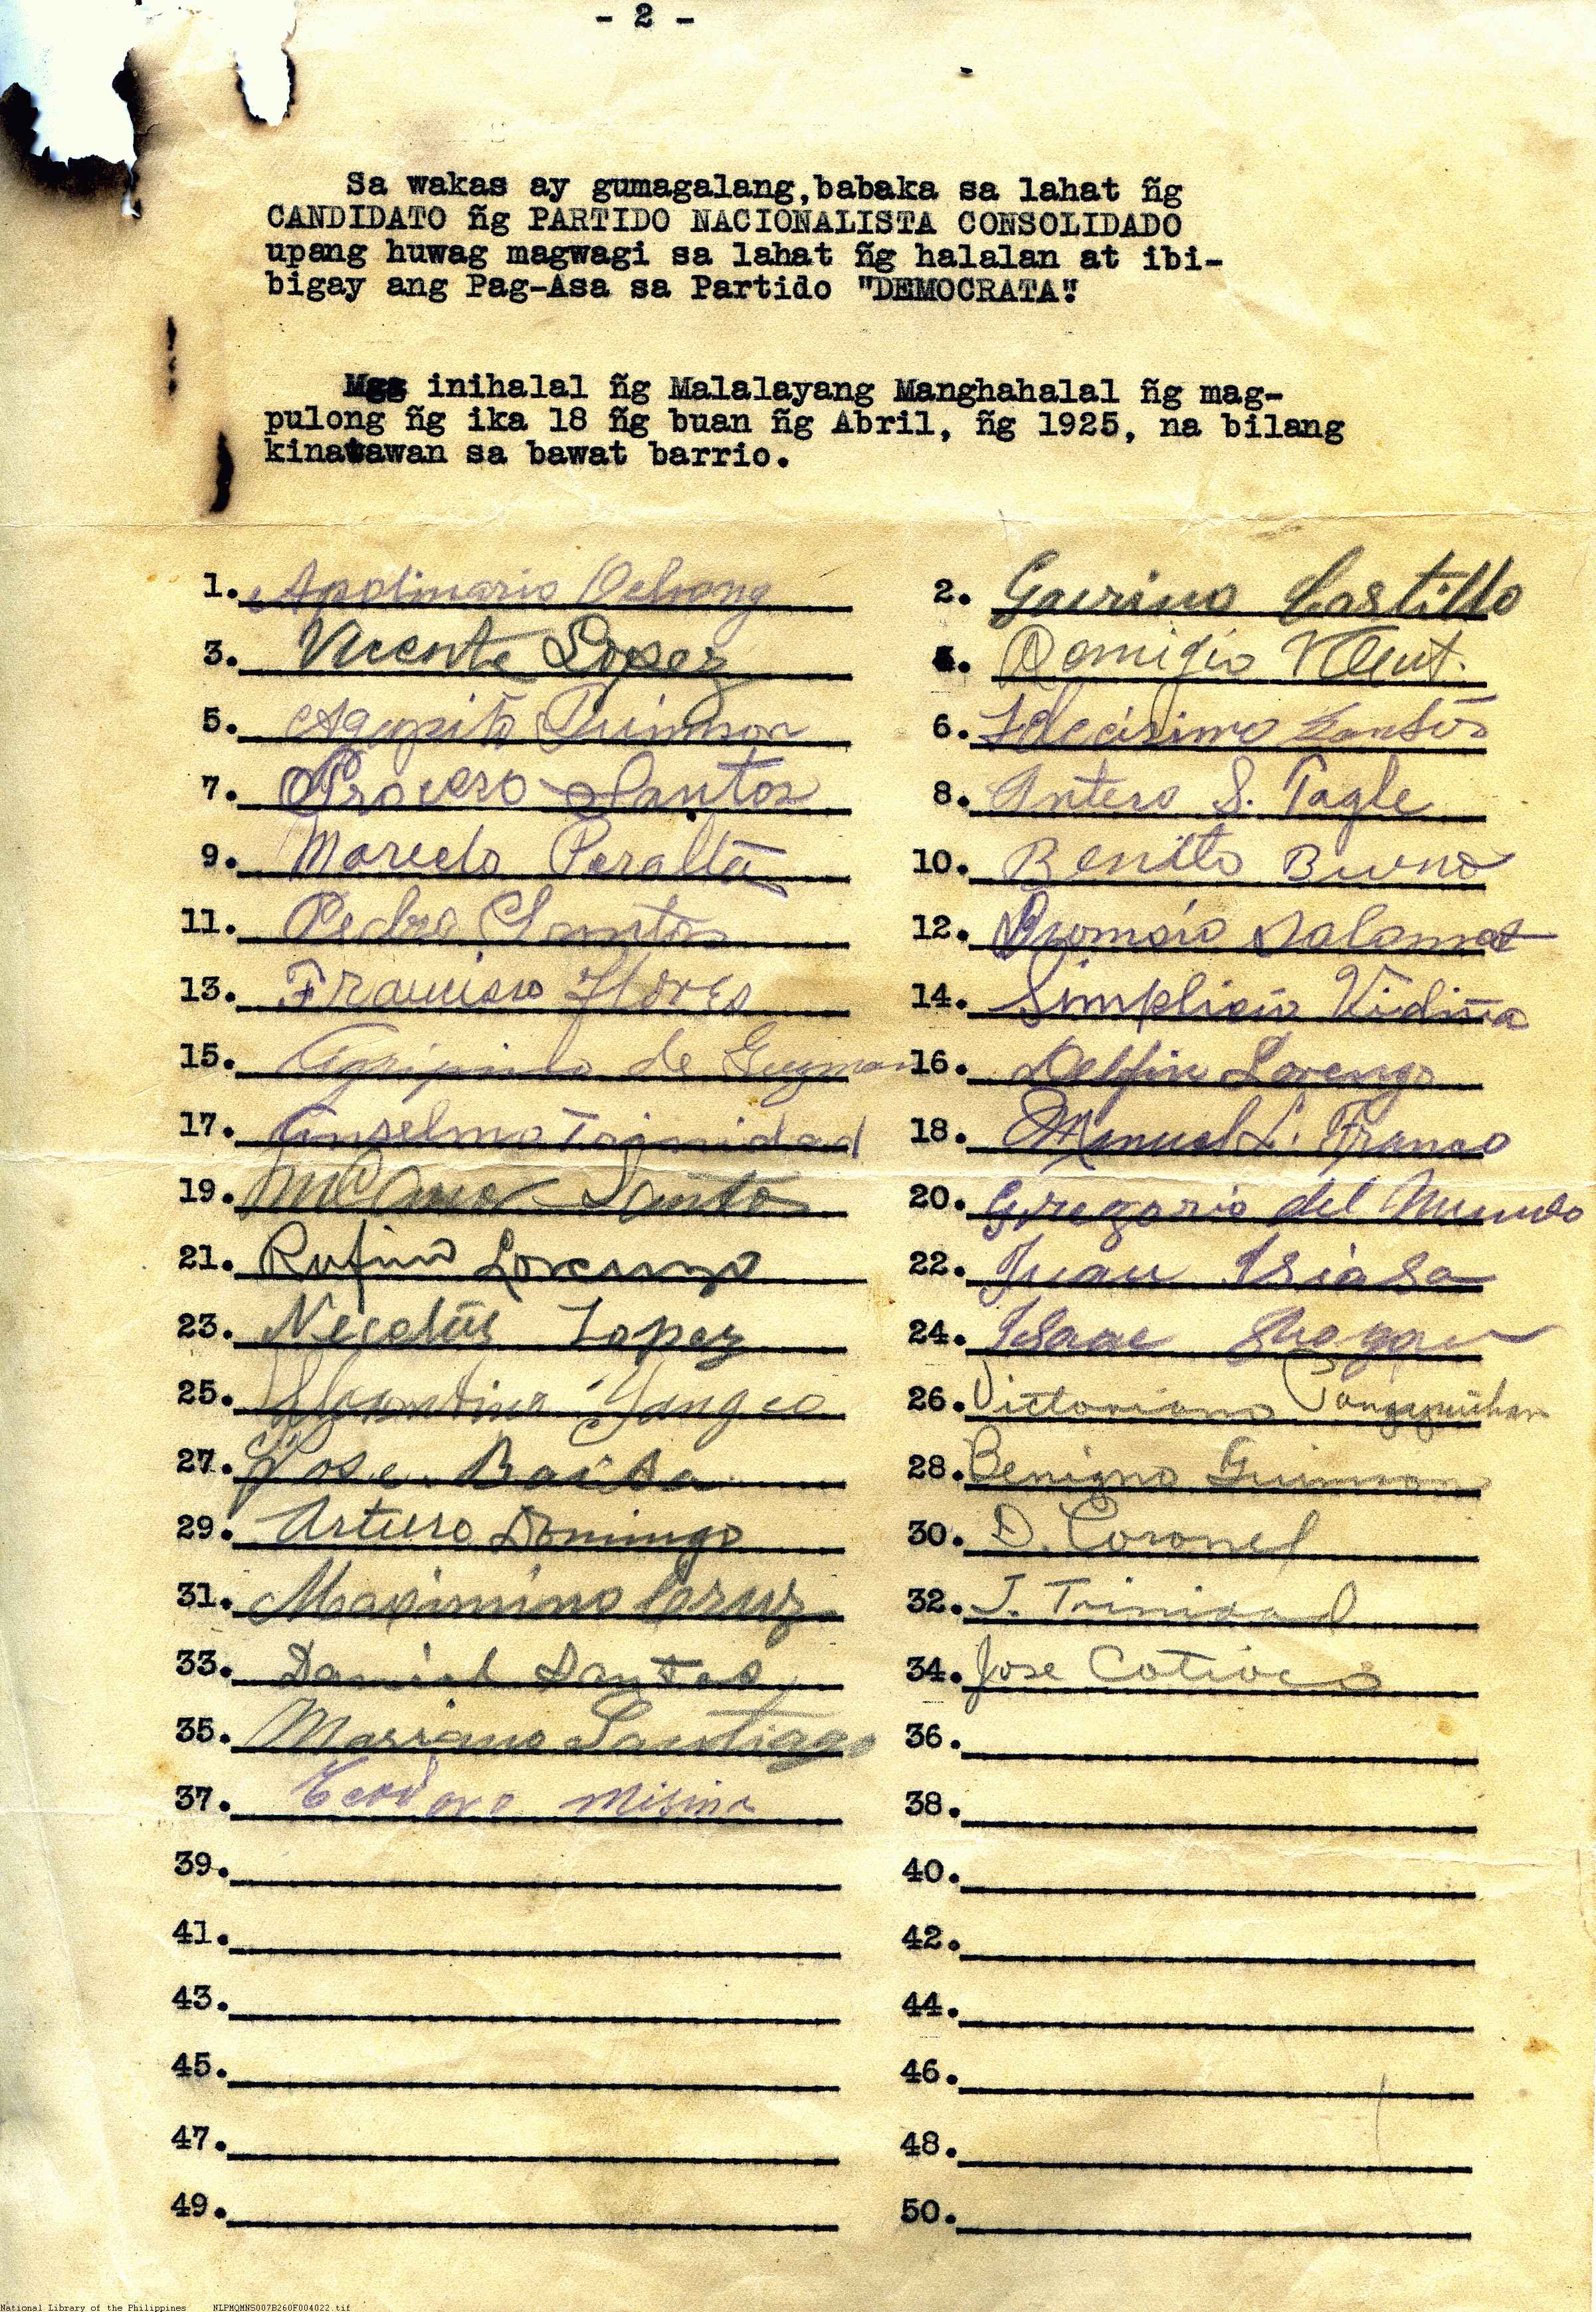 - 2 -
Sa wakas ay gumagalang,babaka sa lahat ñg
CANDIDATO ñg PARTIDO NACIONALISTA CONSOLIDADO
upang huwag magwagi sa lahat ñg halalan at ibi-
bigay ang Pag-Asa sa Partido "DEMOCRATA".
Mga inihalal ñg Malalayang Manghahalal ñg mag-
pulong ñg ika 18 ñg buan ñg Abril, ñg 1925, na bilang
kinatawan sa bawat barrio.
1. Apolinario
2. Gavino Castillo
3. Vicente Lopez
4. Remigio
5. Agapito Guinson
6. Santos
7. Proceso Santos
8. Antero S. Tagle
9. Marcelo Peralta
10. Benito Bueno
11. Pedro Santos
12. Dionisio Salamat
13. Francisco Flores
14. Simplicio Vidiña
15. Agripino de Guzman
16. Delfin Lorenzo
17. Anselmo Trinidad
18. Manuel L. Franco
19. Santos
20. Gregorio del Mundo
21. Rufino Lorenzo
22. Juan
23. Lopez
24. Isaac
25. Yangco
26. Victoriano Panganiban
27. Jose Baisa
28. Benigno Guinson
29. Arturo Domingo
30. D. Coronel
31. Maximino Cruz
32. J. Trinidad
33. Daniel Santos
34. Jose Cotioco
35. Mariano Santiago
36.
37. Teodoro Misina
38.
39.
40.
41.
42.
43.
44.
45.
46.
47.
48.
49.
50.
National Library of the Philippines NLPMQMNS007B260F004022.tif